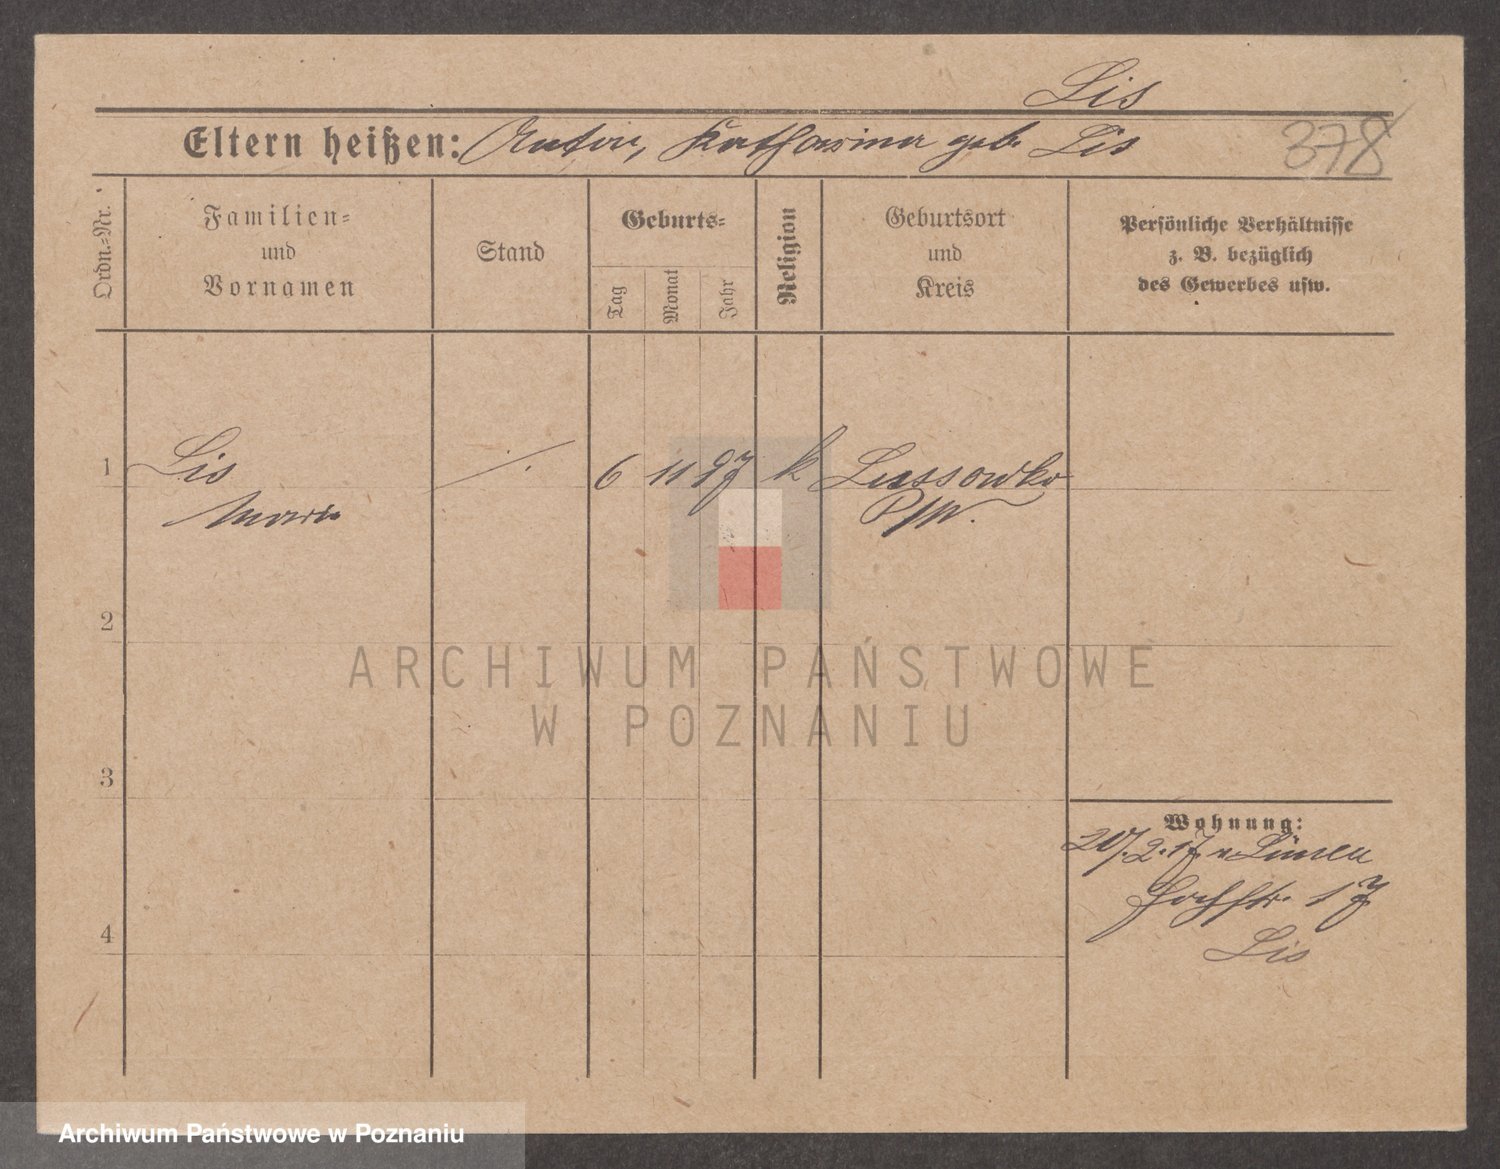 Lis
Eltern heißen: Anton, Katharina geb. Lis
378
Ordn.-Nr.
Familien-
und
Vornamen
Stand
Geburts-
Tag
Monat
Jahr
Religion
Geburtsort
und
Kreis
Persönliche Verhältnisse
z. B. bezüglich
des Gewerbes usw.
1
Lis
6 11 97 k Lussowko
P/W.
2
ARCHIWUM PAŃSTWOWE
W POZNANIU
3
Wohnung:
20/.2.17 v Lünen
Hochstr. 17
Lis
4
Archiwum Państwowe w Poznaniu